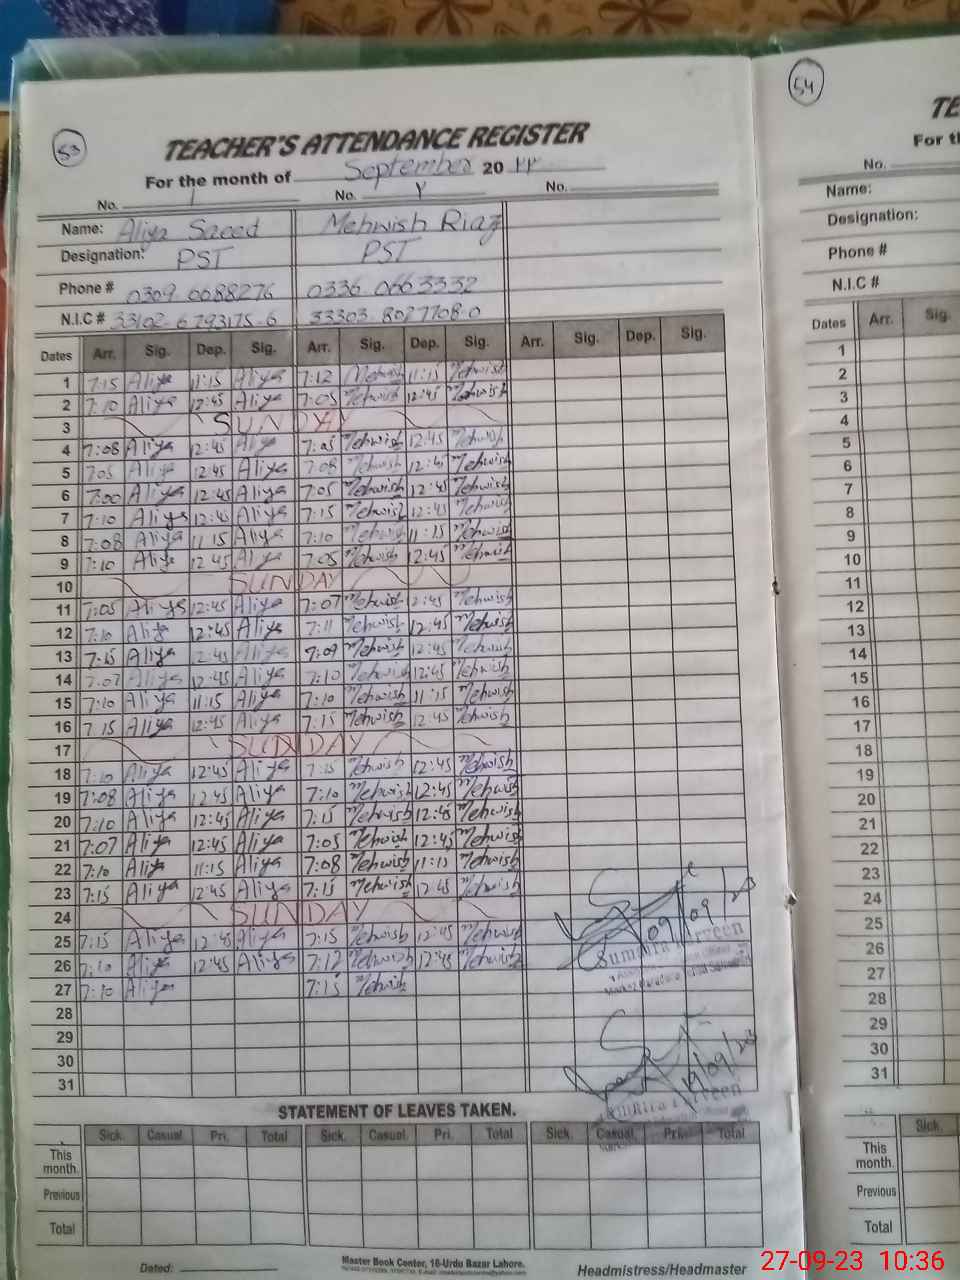 53
TEACHER'S ATTENDANCE REGISTER
For the month of September 20 ۲۳
No. 1 No. ۲ No.
Name: Aliya Saeed Mehwish Riaz
Designation: PST PST
Phone # 0309 6688276 0336 0663332
N.I.C # 33102-6793175-6 33303 8027708-0
Dates Arr. Sig. Dep. Sig. Arr. Sig. Dep. Sig. Arr. Sig. Dep. Sig.
1 7:15 Aliya 11:15 Aliya 7:12 Mehwish 11:15 Mehwish
2 7:10 Aliya 12:45 Aliya 7:05 Mehwish 12:45 Mehwish
3 SUNDAY
4 7:08 Aliya 12:45 Aliya 7:05 Mehwish 12:45 Mehwish
5 7:05 Aliya 12:45 Aliya 7:08 Mehwish 12:45 Mehwish
6 7:00 Aliya 12:45 Aliya 7:05 Mehwish 12:45 Mehwish
7 7:10 Aliya 12:45 Aliya 7:15 Mehwish 12:45 Mehwish
8 7:08 Aliya 11:15 Aliya 7:10 Mehwish 11:15 Mehwish
9 7:10 Aliya 12:45 Aliya 7:05 Mehwish 12:45 Mehwish
10 SUNDAY
11 7:05 Aliya 12:45 Aliya 7:07 Mehwish 12:45 Mehwish
12 7:10 Aliya 12:45 Aliya 7:11 Mehwish 12:45 Mehwish
13 7:15 Aliya 12:45 Aliya 7:09 Mehwish 12:45 Mehwish
14 7:07 Aliya 12:45 Aliya 7:10 Mehwish 12:45 Mehwish
15 7:10 Aliya 11:15 Aliya 7:10 Mehwish 11:15 Mehwish
16 7:15 Aliya 12:45 Aliya 7:15 Mehwish 12:45 Mehwish
17 SUNDAY
18 7:10 Aliya 12:45 Aliya 7:15 Mehwish 12:45 Mehwish
19 7:08 Aliya 12:45 Aliya 7:10 Mehwish 12:45 Mehwish
20 7:10 Aliya 12:45 Aliya 7:15 Mehwish 12:45 Mehwish
21 7:07 Aliya 12:45 Aliya 7:05 Mehwish 12:45 Mehwish
22 7:10 Aliya 11:15 Aliya 7:08 Mehwish 11:15 Mehwish
23 7:15 Aliya 12:45 Aliya 7:15 Mehwish 12:45 Mehwish
24 SUNDAY
25 7:15 Aliya 12:45 Aliya 7:15 Mehwish 12:45 Mehwish
26 7:10 Aliya 12:45 Aliya 7:12 Mehwish 12:45 Mehwish
27 7:10 Aliya 7:15 Mehwish
28
29
30
31
Sumaira Parveen
19/09/23
Sumaira Parveen
STATEMENT OF LEAVES TAKEN.
Sick. Casual Pri. Total Sick. Casual. Pri. Total Sick. Casual. Pri. Total
This month.
Previous
Total
Dated:
Master Book Center, 16-Urdu Bazar Lahore.
Headmistress/Headmaster
54
TE
For th
No.
Name:
Designation:
Phone #
N.I.C #
Dates Arr. Sig.
1
2
3
4
5
6
7
8
9
10
11
12
13
14
15
16
17
18
19
20
21
22
23
24
25
26
27
28
29
30
31
Sick.
This month.
Previous
Total
27-09-23 10:36